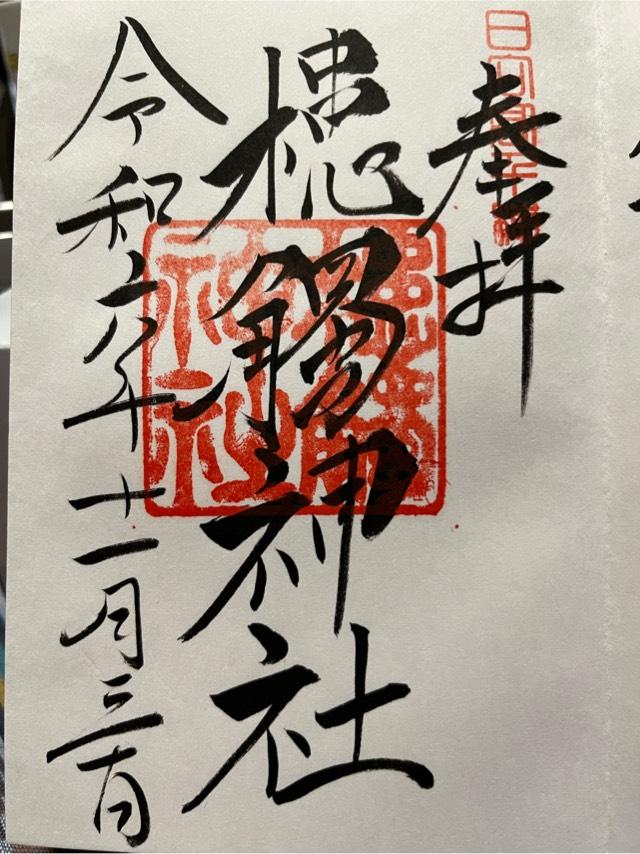 奉拝
槵觸神社
令和六年十一月三日